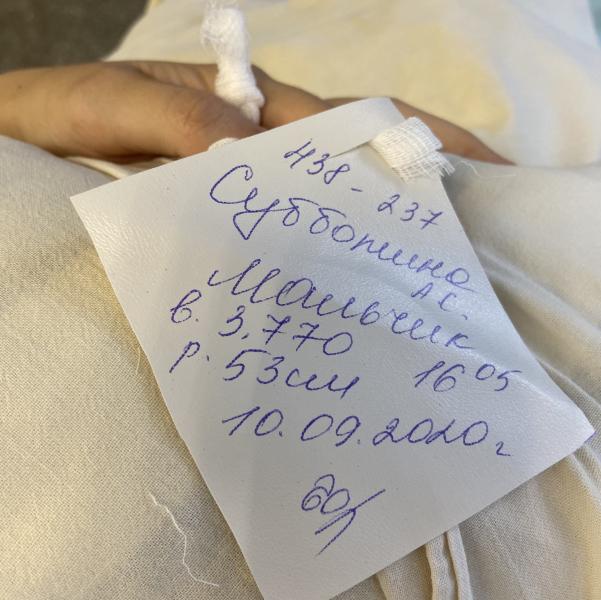 438-237
Субботина
А С.
Мальчик
в. 3,770
р. 53см 16 05
10.09.2020г